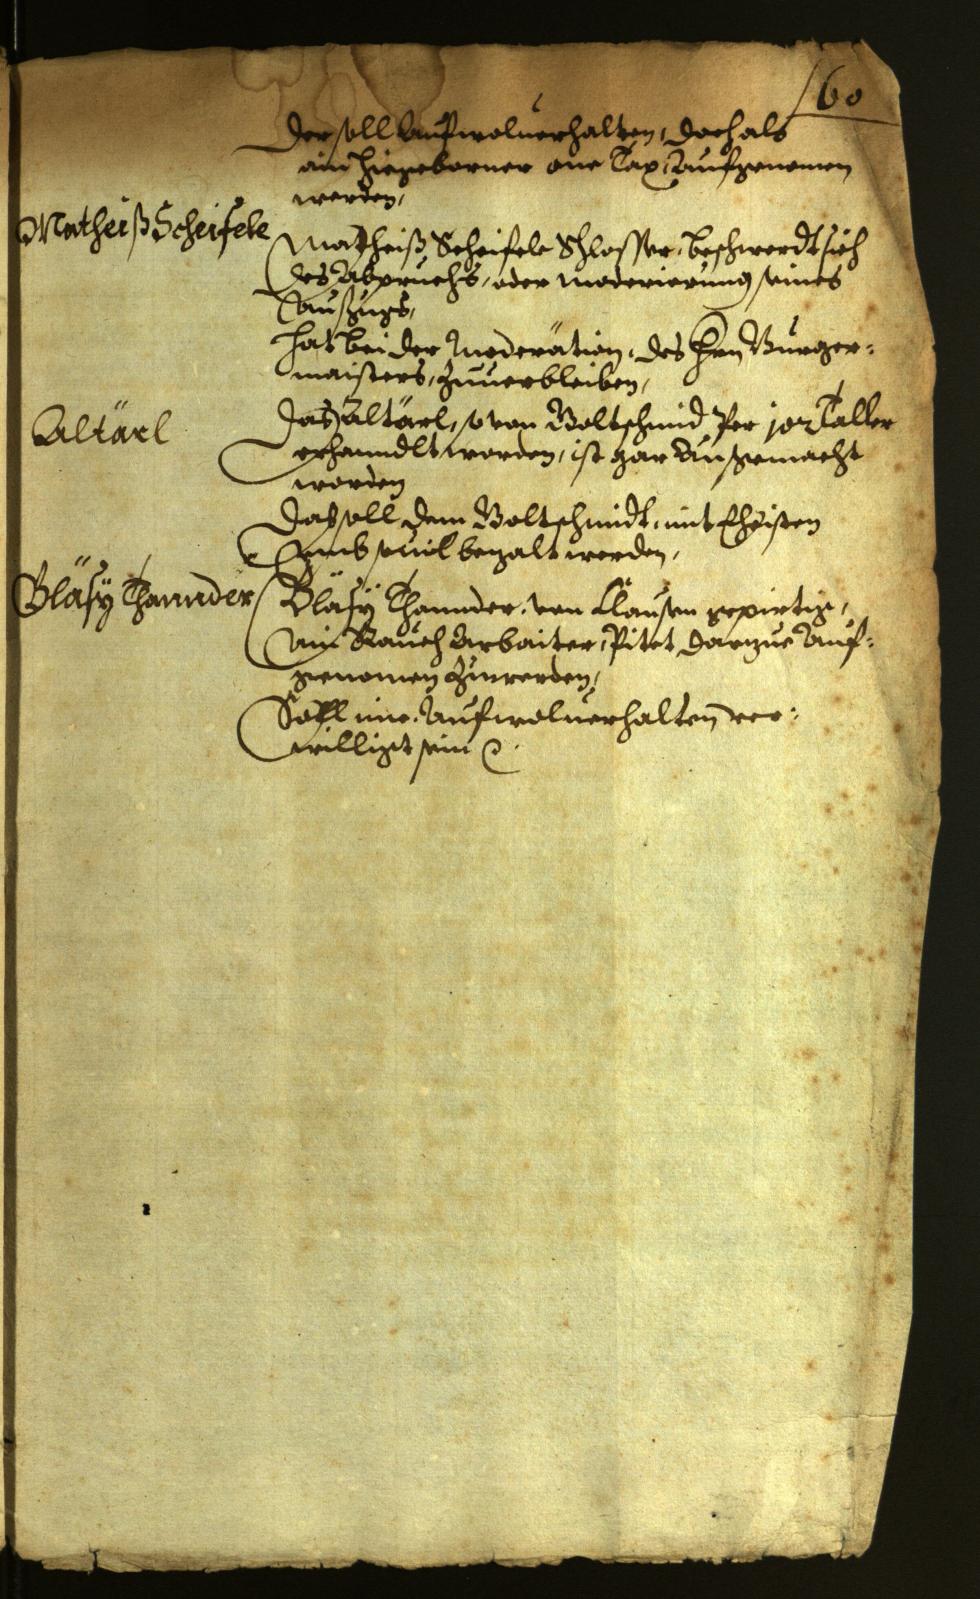 60
Der soll auf wolverhalten, doch als
ain hiegeborner one Tax, aufgenomen
werden,
Matheiß Scheifele
Matheiß Scheifele Schlosser, beschwerdt sich
des Abpruchs, oder moderierung seines
Außzugs,
hat bei der Moderätion, des Hrn Burger-
maisters, zuverbleiben,
Altärl
Das Altärl, so von Boltschmid Per 10 Taller
erhanndlt worden, ist gar außgemacht
worden
Das soll dem Boltschmidt, mit
umb sovil bezalt werden,
Bläsÿ Thannder
Bläsÿ Thannder, von Clausen gepirtig,
ain Rauch Arbaiter, Pitet darzue auf-
genomen zuwerden,
Soll ime, auf wolverhalten ver-
willigt sein